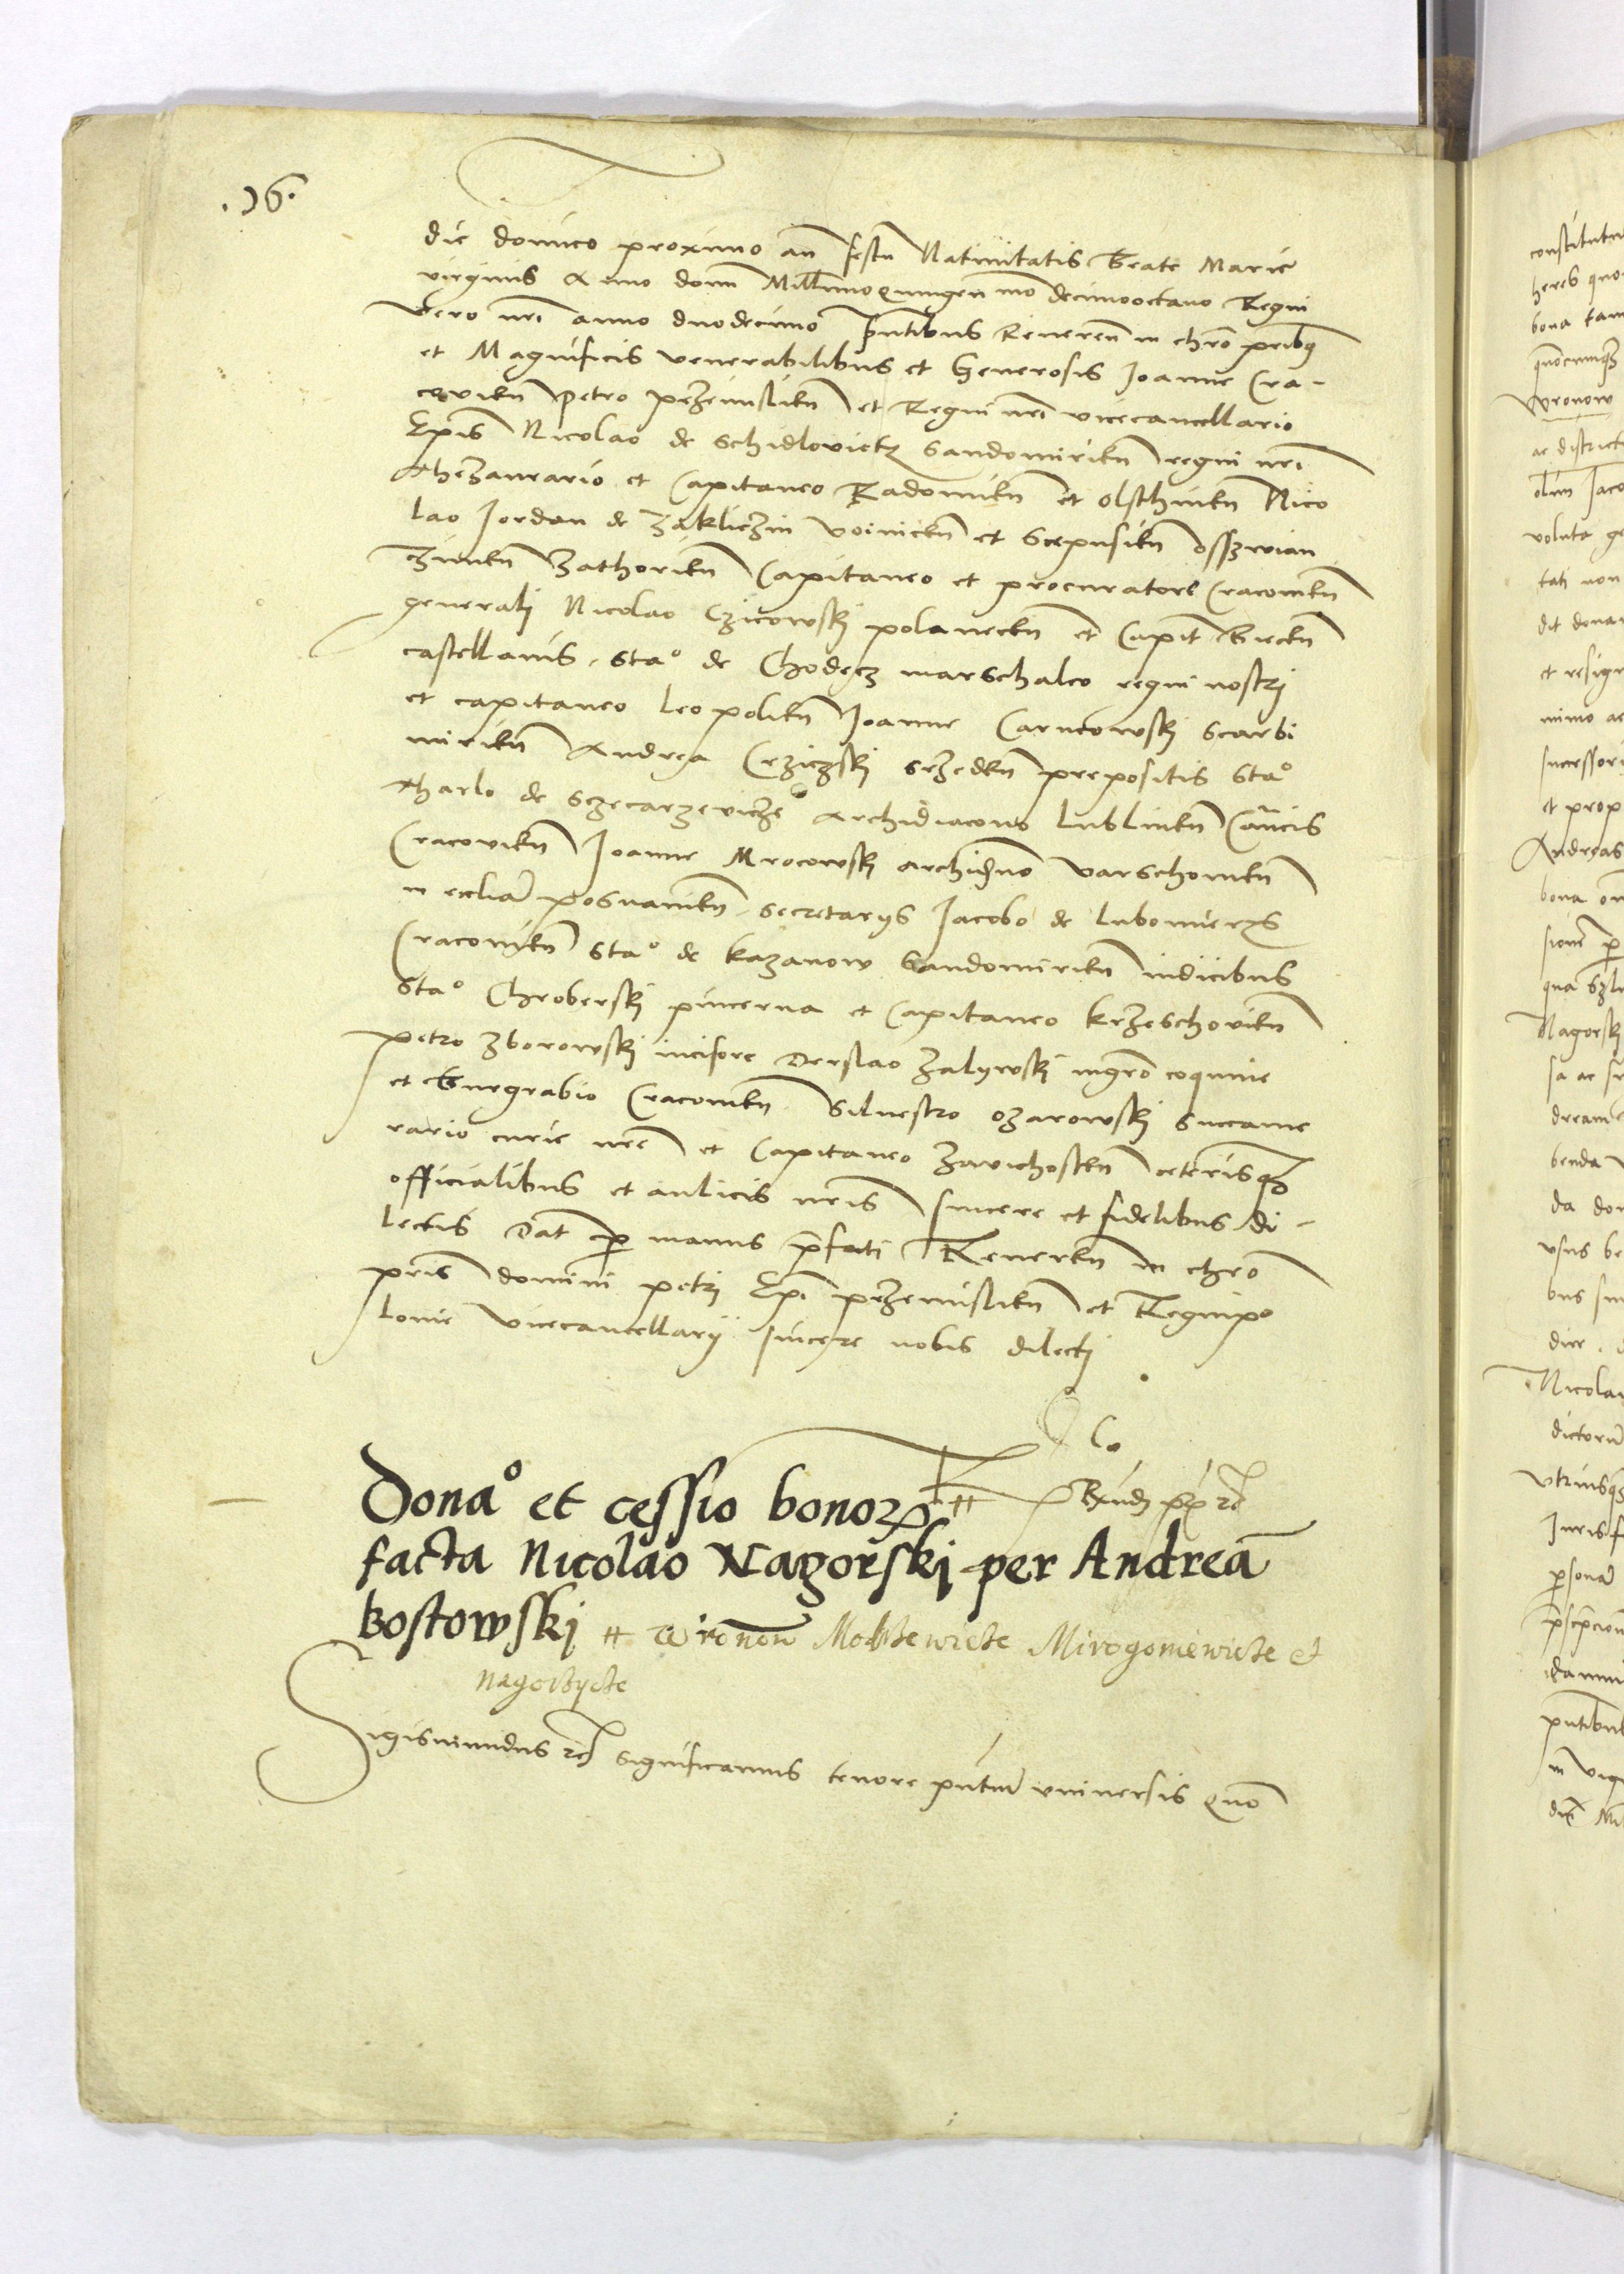 .16.
die dominico proximo an festum Natiuitatis Beate Marie
virginis Anno domini Millesimoquingen mo decimooctauo Regni
vero nri anno duodecimo pntibus Reueren in chro pribus
et Magnificis venerabilibus et Generosis Joanne Cra-
couien Petro przemislien et Regni nri vicecancellario
Epis Nicolao de Schidlovietz Sandomirien regni nri
Thezaurario et Capitaneo Radomien et Olschinen Nico
lao Jordan de Zakliczin Voinicen et Scepusien Osszwian
czimen Zathorien Capitaneo et procuratore Cracouien
generali Nicolao Czicowskj polanecen et Capit Biecen
castellanis. Stao de Chodecz marschalco regni nostrj
et capitaneo Leopolien Joanne Carncowskj Scarbi
mirien Andrea Crziczskj Srzeden prepositis Stao
Tharlo de Sczecarzevicze Archidiacono Lublinen Cancis
Cracovien Joanne Mrocowskj archidno Varschouien
in ecclia posnanien. Secretarijs Jacobo de Lubomierz
Cracouien Stao de Kazanow Sandomirien iudicibus
Stao Chroberskj pincerna et Capitaneo Krzeschovien
Petro Zborowskj incisore Derslao Zalywskj mgro coquine
et Burgrabio Cracouien. Siluestro Ozarowskj Succame
rario curie nre et Capitaneo Zavichosten ceterisque
officialibus et aulicis nris sincere et fidelibus di-
lectis Dat per manus prefati Reueren in chro
pris domini petrj Epi przemislien et Regni po
lonie Vicecancellarij sincere nobis dilectj
Donao et cessio bonor #
facta Nicolao Nagorskj per Andrea
Bostowskj # Wronow Modrzewicze Mirogoniewicze et
Nagorzycze
Sigismundus rc significamus tenore pntium vniuersis Quo